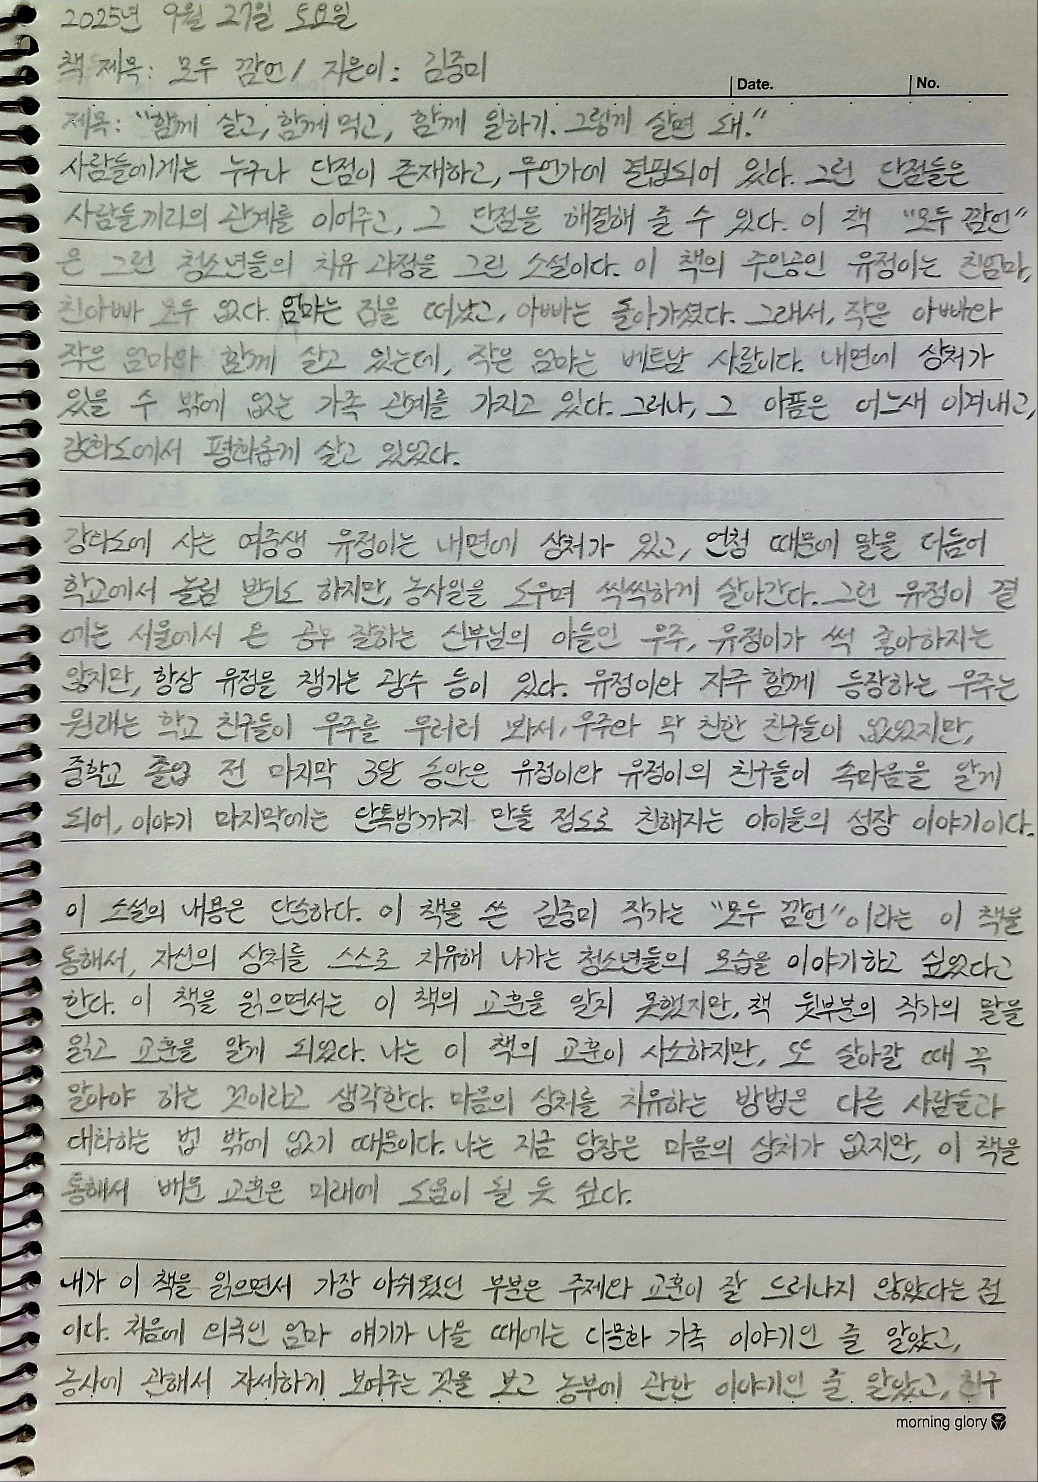 2025년 9월 27일 토요일
책 제목: 모두 깜언 / 지은이: 김중미
Date. No.
제목: "함께 살고, 함께 먹고, 함께 일하기. 그렇게 살면 돼."
사람들에게는 누구나 단점이 존재하고, 무언가에 결핍되어 있다. 그런 단점들은
사람들끼리의 관계를 이어주고, 그 단점을 해결해 줄 수 있다. 이 책 "모두 깜언"
은 그런 청소년들의 치유 과정을 그린 소설이다. 이 책의 주인공인 유정이는 친엄마,
친아빠 모두 없다. 엄마는 집을 떠났고, 아빠는 돌아가셨다. 그래서, 작은 아빠와
작은 엄마와 함께 살고 있는데, 작은 엄마는 베트남 사람이다. 내면에 상처가
있을 수 밖에 없는 가족 관계를 가지고 있다. 그러나, 그 아픔은 어느새 이겨내고,
강화도에서 평화롭게 살고 있었다.
강화도에 사는 여중생 유정이는 내면에 상처가 있고, 언청 때문에 말을 더듬어
학교에서 놀림 받기도 하지만, 농사일을 도우며 씩씩하게 살아간다. 그런 유정이 곁
에는 서울에서 온 공부 잘하는 신부님의 아들인 우주, 유정이가 썩 좋아하지는
않지만, 항상 유정을 챙기는 광수 등이 있다. 유정이와 자주 함께 등장하는 우주는
원래는 학교 친구들이 우주를 우러러 봐서, 우주와 막 친한 친구들이 없었지만,
중학교 졸업 전 마지막 3달 동안은 유정이와 유정이의 친구들이 속마음을 알게
되어, 이야기 마지막에는 단톡방까지 만들 정도로 친해지는 아이들의 성장 이야기이다.
이 소설의 내용은 단순하다. 이 책을 쓴 김중미 작가는 "모두 깜언"이라는 이 책을
통해서, 자신의 상처를 스스로 치유해 나가는 청소년들의 모습을 이야기하고 싶었다고
한다. 이 책을 읽으면서는 이 책의 교훈을 알지 못했지만, 책 뒷부분의 작가의 말을
읽고 교훈을 알게 되었다. 나는 이 책의 교훈이 사소하지만, 또 살아갈 때 꼭
알아야 하는 것이라고 생각한다. 마음의 상처를 치유하는 방법은 다른 사람들과
대화하는 법 밖에 없기 때문이다. 나는 지금 당장은 마음의 상처가 없지만, 이 책을
통해서 배운 교훈은 미래에 도움이 될 듯 싶다.
내가 이 책을 읽으면서 가장 아쉬웠던 부분은 주제와 교훈이 잘 드러나지 않았다는 점
이다. 처음에 외국인 엄마 얘기가 나올 때에는 다문화 가족 이야기인 줄 알았고,
농사에 관해서 자세하게 보여주는 것을 보고 농부에 관한 이야기인 줄 알았고, 친구
morning glory